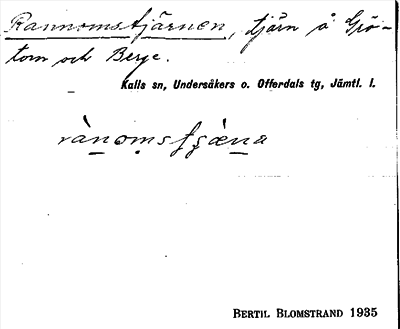 Rannomstjärnen, tjärn å Grö-
tom och Berge.
Kalls sn, Undersåkers o. Offerdals tg, Jämtl. l.
BERTIL BLOMSTRAND 1935